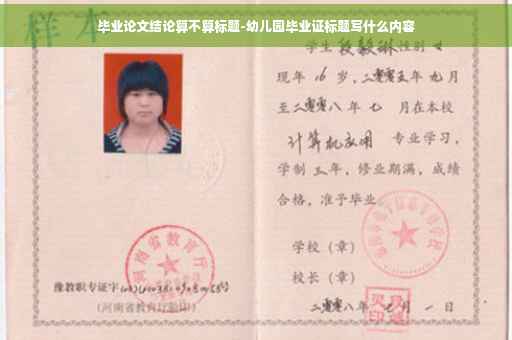 毕业论文结论算不算标题-幼儿园毕业证标题写什么内容
样本
学生 段毅琳 性别 女
现年 16 岁,二零零五年 九月
至二零零八年 七 月在本校
计算机应用 专业学习,
学制 三 年,修业期满,成绩
合格,准予毕业
学校(章)
校长(章)
二零零八年 月 一 日
河南省教育厅
豫教职专证字
(河南省教育厅验印)